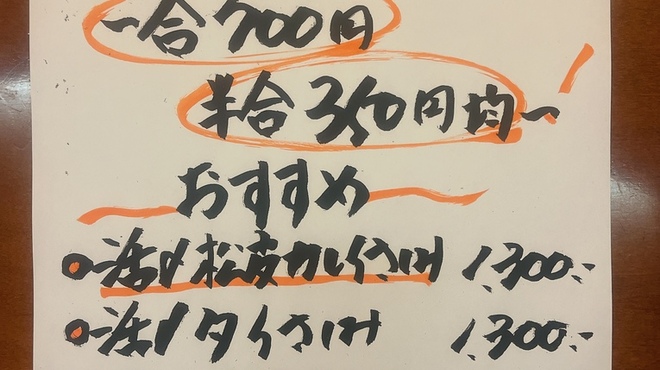 一合700円
半合350円均一!
おすすめ
活〆松皮カレイさしみ 1,300.-
活〆タイさしみ 1,300.-